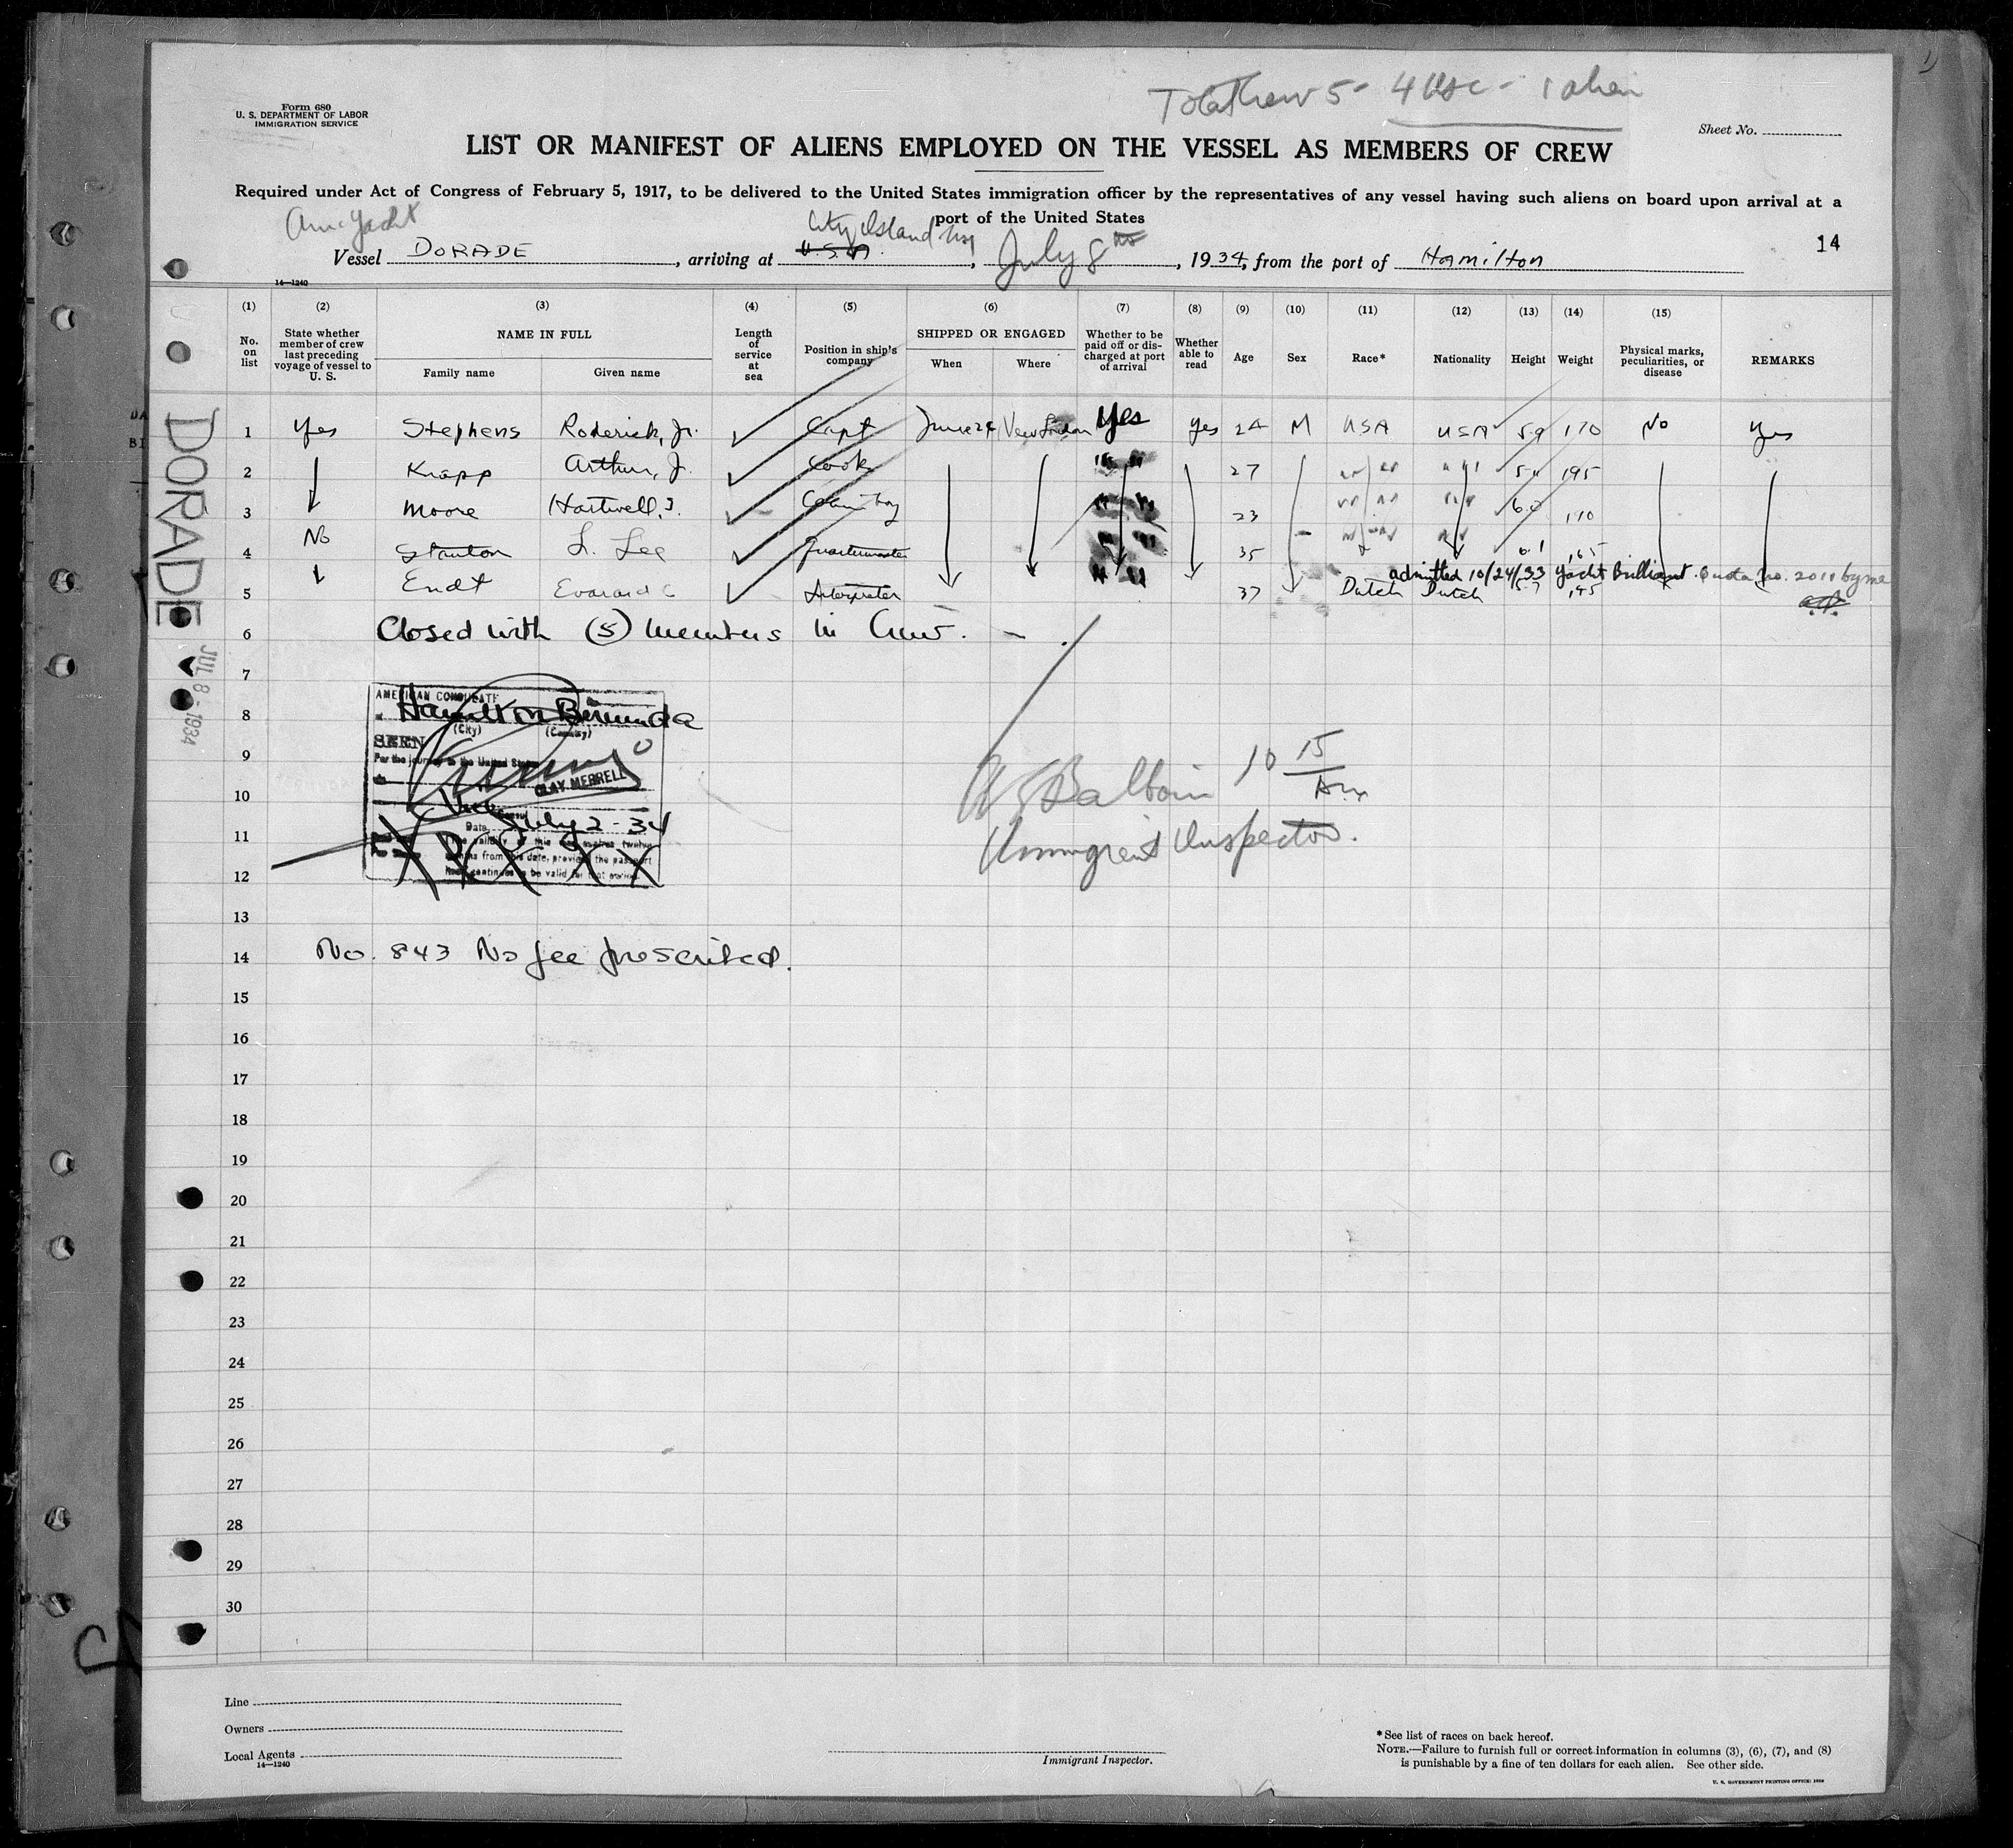 Total Crew 5 - 4 USC - 1 alien
Form 680
U. S. DEPARTMENT OF LABOR
IMMIGRATION SERVICE
Sheet No.
LIST OR MANIFEST OF ALIENS EMPLOYED ON THE VESSEL AS MEMBERS OF CREW
Required under Act of Congress of February 5, 1917, to be delivered to the United States immigration officer by the representatives of any vessel having such aliens on board upon arrival at a
port of the United States
Am. Yacht
City Island
14
Vessel DORADE, arriving at U.S.A., July 8th, 1934, from the port of Hamilton
14—1240
(1) (2) (3) (4) (5) (6) (7) (8) (9) (10) (11) (12) (13) (14) (15)
No. on list
State whether member of crew last preceding voyage of vessel to U. S.
NAME IN FULL
Family name
Given name
Length of service at sea
Position in ship's company
SHIPPED OR ENGAGED
When
Where
Whether to be paid off or discharged at port of arrival
Whether able to read
Age
Sex
Race*
Nationality
Height
Weight
Physical marks, peculiarities, or disease
REMARKS
1 Yes Stephens Roderick, Jr. Capt June 24 New London Yes yes 24 M USA USA 5.9 170 No Yes
2 Knapp Arthur, Jr. Cook " " 27 " " " " 5.11 195
3 Moore Hartwell, J. Cabin boy " " 23 " " " " 6.0 170
4 No Stanton L. Lee Quartermaster " " 35 " " " " 6.1 165
admitted 10/24/33 Yacht Brilliant. Quota No. 2011 by me
5 Endt Evarard C Interpreter " " 37 Dutch Dutch 5.7
6 Closed with (5) members in Crew. —
7
8
9
10
11
12
13
14 No. 843 No fee prescribed.
15
16
17
18
19
20
21
22
23
24
25
26
27
28
29
30
DORADE
JUL 8 - 1934
AMERICAN CONSULATE
Hamilton Bermuda
(City) (Country)
SEEN
For the journey to the United States
CLAY MERRELL
Vice Consul
Date July 2-34
The validity of this expires twelve
months from this date, provided the passport
continues to be valid for that period.
Balboin 10 15/Am
Immigrant Inspector.
Line
Owners
Local Agents
14—1240
Immigrant Inspector.
*See list of races on back hereof.
NOTE.—Failure to furnish full or correct information in columns (3), (6), (7), and (8)
is punishable by a fine of ten dollars for each alien. See other side.